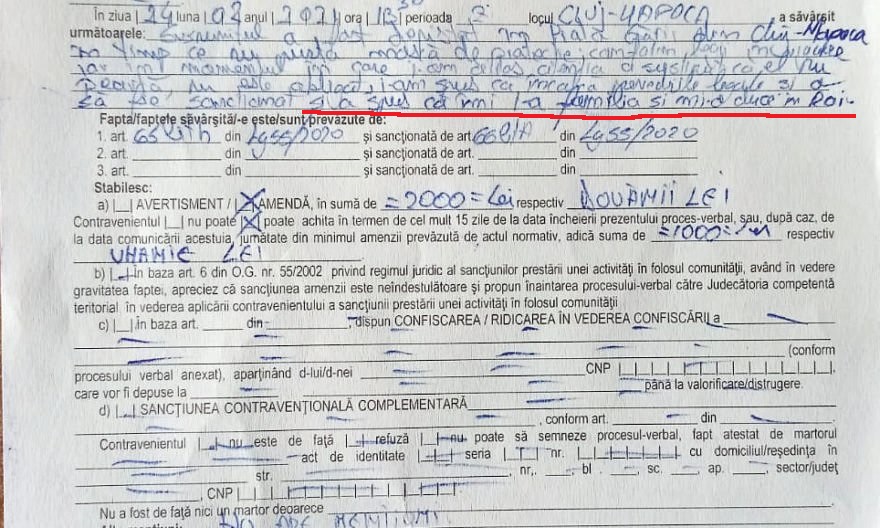 În ziua |24 luna |02 anul |2021| ora |13 30 perioada locul CLUJ-NAPOCA a săvârşit
următoarele: Susnumitul a fost depistat în Piața Gării din Cluj-Napoca
în timp ce nu purta mască de protecție,
iar în momentul în care i-am
nu este obligat, i-am spus că încalcă prevederile legale și a
să fie sancționat și a spus că mi l-a familia și mi-o duce în Rai.
Fapta/faptele săvârşită/-e este/sunt prevăzute de:
1. art. 65 lit h din Lg 55/2020 şi sancţionată de art. 66 lit A din Lg 55/2020
2. art. din şi sancţionată de art. din
3. art. din şi sancţionată de art. din
Stabilesc:
a) |_| AVERTISMENT / |X| AMENDĂ, în sumă de =2000= Lei respectiv DOUAMII LEI
Contravenientul |_| nu poate |X| poate achita în termen de cel mult 15 zile de la data încheierii prezentului proces-verbal, sau, după caz, de
la data comunicării acestuia, jumătate din minimul amenzii prevăzută de actul normativ, adică suma de =1000= respectiv
UNAMIE LEI
b) |_| În baza art. 6 din O.G. nr. 55/2002 privind regimul juridic al sancţiunilor prestării unei activităţi în folosul comunităţii, având în vedere
gravitatea faptei, apreciez că sancţiunea amenzii este neîndestulătoare şi propun înaintarea procesului-verbal către Judecătoria competentă
teritorial în vederea aplicării contravenientului a sancţiunii prestării unei activităţi în folosul comunităţii
c) |_| în baza art. din dispun CONFISCAREA / RIDICAREA ÎN VEDEREA CONFISCĂRII a
(conform
procesului verbal anexat), aparţinând d-lui/d-nei CNP
care vor fi depuse la până la valorificare/distrugere.
d) |_| SANCŢIUNEA CONTRAVENŢIONALĂ COMPLEMENTARĂ
, conform art. din
Contravenientul |_| nu este de faţă |_| refuză |_| nu poate să semneze procesul-verbal, fapt atestat de martorul
act de identitate seria nr. cu domiciliul/reşedinţa în
str. nr. bl. sc. ap. sector/judeţ
, CNP
Nu a fost de faţă nici un martor deoarece
NU ARE MENȚIUNI